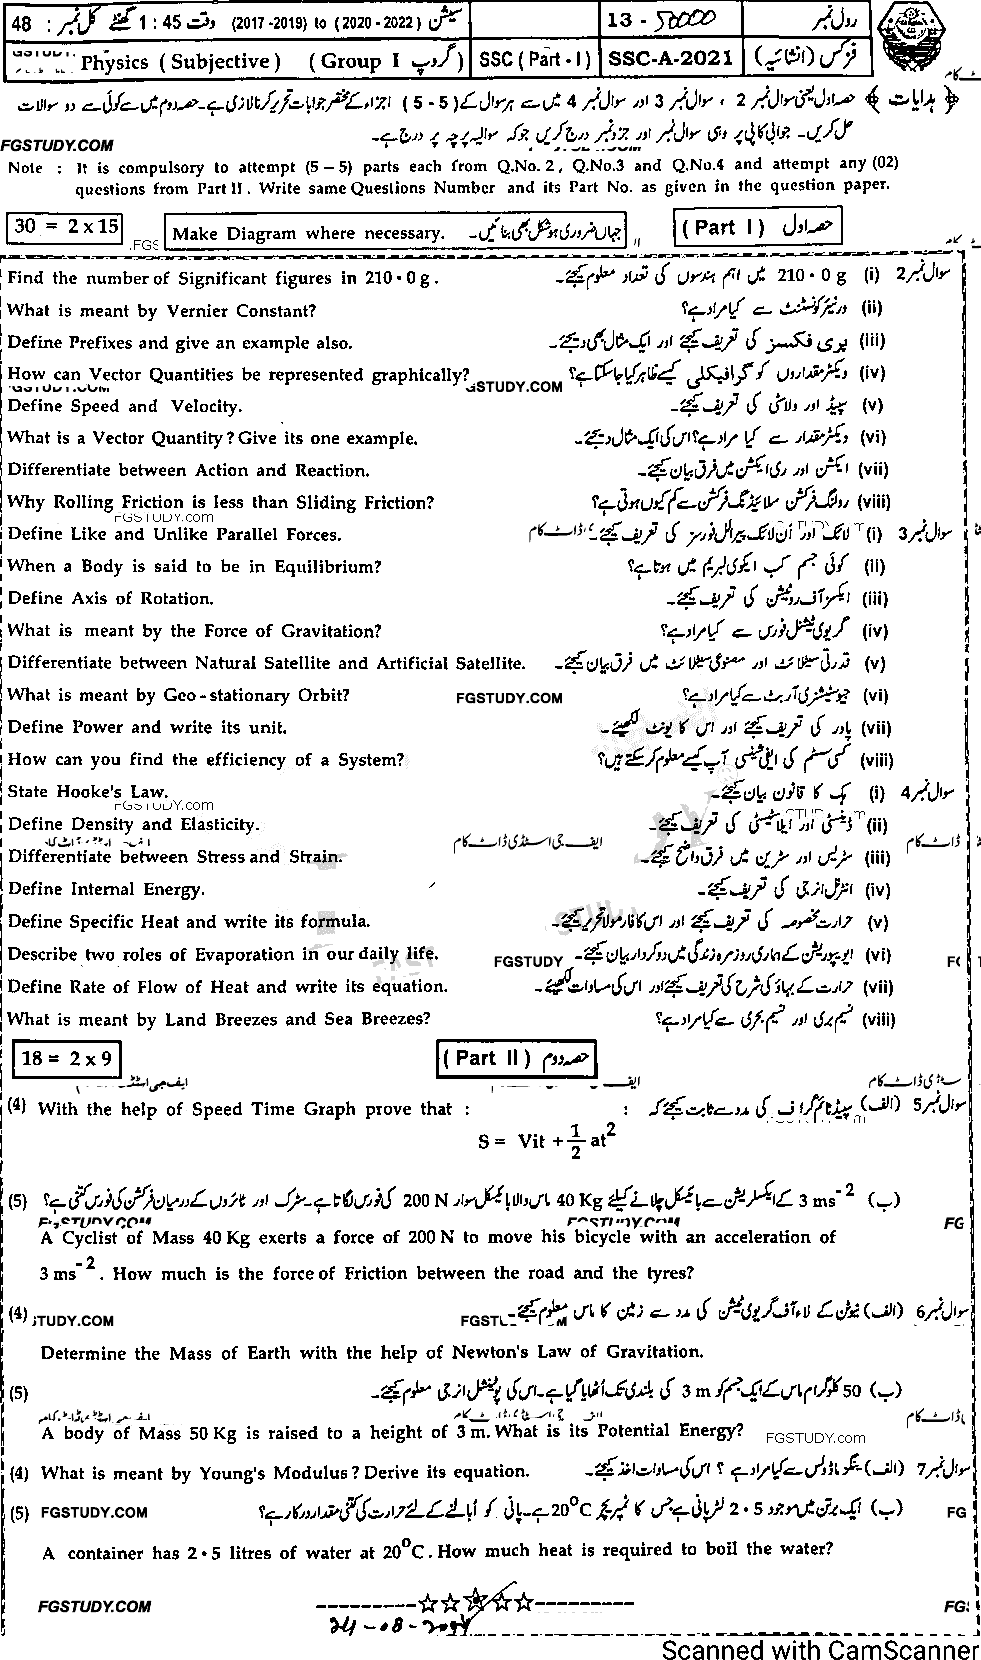 رول نمبر 13 - 50000 سیشن (2017 -2019) to (2020 - 2022) وقت 1 : 45 گھنٹے کل نمبر : 48
فزکس (انشائیہ) SSC-A-2021 SSC ( Part - I ) گروپ ( Group I ) Physics ( Subjective )
﴿ ہدایات ﴾ حصہ اول یعنی سوال نمبر 2 ، سوال نمبر 3 اور سوال نمبر 4 میں سے ہر سوال کے ( 5 - 5 ) اجزاء کے مختصر جوابات تحریر کرنا لازمی ہے۔ حصہ دوم میں سے کوئی سے دو سوالات
حل کریں۔ جوابی کاپی پر وہی سوال نمبر اور جز و نمبر درج کریں جو کہ سوالیہ پرچہ پر درج ہے۔
FGSTUDY.COM
Note : It is compulsory to attempt (5 – 5) parts each from Q.No. 2 , Q.No.3 and Q.No.4 and attempt any (02)
questions from Part II . Write same Questions Number and its Part No. as given in the question paper.
30 = 2 x 15 Make Diagram where necessary. جہاں ضروری ہو شکل بھی بنائیں۔ ( Part I ) حصہ اول
Find the number of Significant figures in 210 • 0 g . سوال نمبر 2 (i) 210 • 0 g میں اہم ہندسوں کی تعداد معلوم کیجئے۔
What is meant by Vernier Constant? (ii) ورنیئر کونسٹنٹ سے کیا مراد ہے؟
Define Prefixes and give an example also. (iii) پری فکسز کی تعریف کیجئے اور ایک مثال بھی دیجئے۔
How can Vector Quantities be represented graphically? (iv) ویکٹر مقداروں کو گرافیکلی کیسے ظاہر کیا جا سکتا ہے؟
GSTUDY.COM
Define Speed and Velocity. (v) سپیڈ اور ولاسٹی کی تعریف کیجئے۔
What is a Vector Quantity ? Give its one example. (vi) ویکٹر مقدار سے کیا مراد ہے؟ اس کی ایک مثال دیجئے۔
Differentiate between Action and Reaction. (vii) ایکشن اور ری ایکشن میں فرق بیان کیجئے۔
Why Rolling Friction is less than Sliding Friction? (viii) رولنگ فرکشن سلائیڈنگ فرکشن سے کم کیوں ہوتی ہے؟
FGSTUDY.com
Define Like and Unlike Parallel Forces. سوال نمبر 3 (i) لائک اور اَن لائک پیرالل فورسز کی تعریف کیجئے۔
When a Body is said to be in Equilibrium? (ii) کوئی جسم کب ایکوی لبریم میں ہوتا ہے؟
Define Axis of Rotation. (iii) ایکسز آف روٹیشن کی تعریف کیجئے۔
What is meant by the Force of Gravitation? (iv) گریوی ٹیشنل فورس سے کیا مراد ہے؟
Differentiate between Natural Satellite and Artificial Satellite. (v) قدرتی سیٹلائٹ اور مصنوعی سیٹلائٹ میں فرق بیان کیجئے۔
What is meant by Geo - stationary Orbit? FGSTUDY.COM (vi) جیو سٹیشنری آربٹ سے کیا مراد ہے؟
Define Power and write its unit. (vii) پاور کی تعریف کیجئے اور اس کا یونٹ لکھیئے۔
How can you find the efficiency of a System? (viii) کسی سسٹم کی ایفی شینسی آپ کیسے معلوم کر سکتے ہیں؟
State Hooke's Law. سوال نمبر 4 (i) ہک کا قانون بیان کیجئے۔
FGSTUDY.com
Define Density and Elasticity. (ii) ڈینسٹی اور ایلاسٹیسٹی کی تعریف کیجئے۔
ایف جی اسٹڈی ڈاٹ کام
Differentiate between Stress and Strain. (iii) سٹریس اور سٹرین میں فرق واضح کیجئے۔
Define Internal Energy. (iv) انٹرنل انرجی کی تعریف کیجئے۔
Define Specific Heat and write its formula. (v) حرارت مخصوصہ کی تعریف کیجئے اور اس کا فارمولا تحریر کیجئے۔
Describe two roles of Evaporation in our daily life. FGSTUDY (vi) ایویپوریشن کے ہماری روز مرہ زندگی میں دو کردار بیان کیجئے۔
Define Rate of Flow of Heat and write its equation. (vii) حرارت کے بہاؤ کی شرح کی تعریف کیجئے اور اس کی مساوات لکھیئے۔
What is meant by Land Breezes and Sea Breezes? (viii) نسیم بری اور نسیم بحری سے کیا مراد ہے؟
18 = 2 x 9 ( Part II ) حصہ دوم
(4) With the help of Speed Time Graph prove that : سوال نمبر 5 (الف) سپیڈ ٹائم گراف کی مدد سے ثابت کیجئے کہ :
S = Vit + 1/2 at²
(5) (ب) 3 ms⁻² کے ایکسلریشن سے بائیسکل چلانے کیلئے 40 Kg ماس والا بائیسکل سوار 200 N کی فورس لگاتا ہے۔ سڑک اور ٹائروں کے درمیان فرکشن کی فورس کتنی ہے؟
FGSTUDY.COM FGSTUDY.COM FG
A Cyclist of Mass 40 Kg exerts a force of 200 N to move his bicycle with an acceleration of
3 ms⁻² . How much is the force of Friction between the road and the tyres?
(4) سوال نمبر 6 (الف) نیوٹن کے لاء آف گریوی ٹیشن کی مدد سے زمین کا ماس معلوم کیجئے۔
Determine the Mass of Earth with the help of Newton's Law of Gravitation.
(5) (ب) 50 کلوگرام ماس کے ایک جسم کو 3 m کی بلندی تک اُٹھایا گیا ہے۔ اس کی پوٹینشل انرجی معلوم کیجئے۔
A body of Mass 50 Kg is raised to a height of 3 m. What is its Potential Energy? FGSTUDY.com
(4) What is meant by Young's Modulus ? Derive its equation. سوال نمبر 7 (الف) ینگز ماڈولس سے کیا مراد ہے ؟ اس کی مساوات اخذ کیجئے۔
(5) FGSTUDY.COM (ب) ایک برتن میں موجود 2 • 5 لٹر پانی ہے جس کا ٹمپریچر 20°C ہے۔ پانی کو اُبالنے کے لئے حرارت کی کتنی مقدار درکار ہے؟ FG
A container has 2 • 5 litres of water at 20°C . How much heat is required to boil the water?
FGSTUDY.COM ---------☆☆☆☆☆---------
Scanned with CamScanner